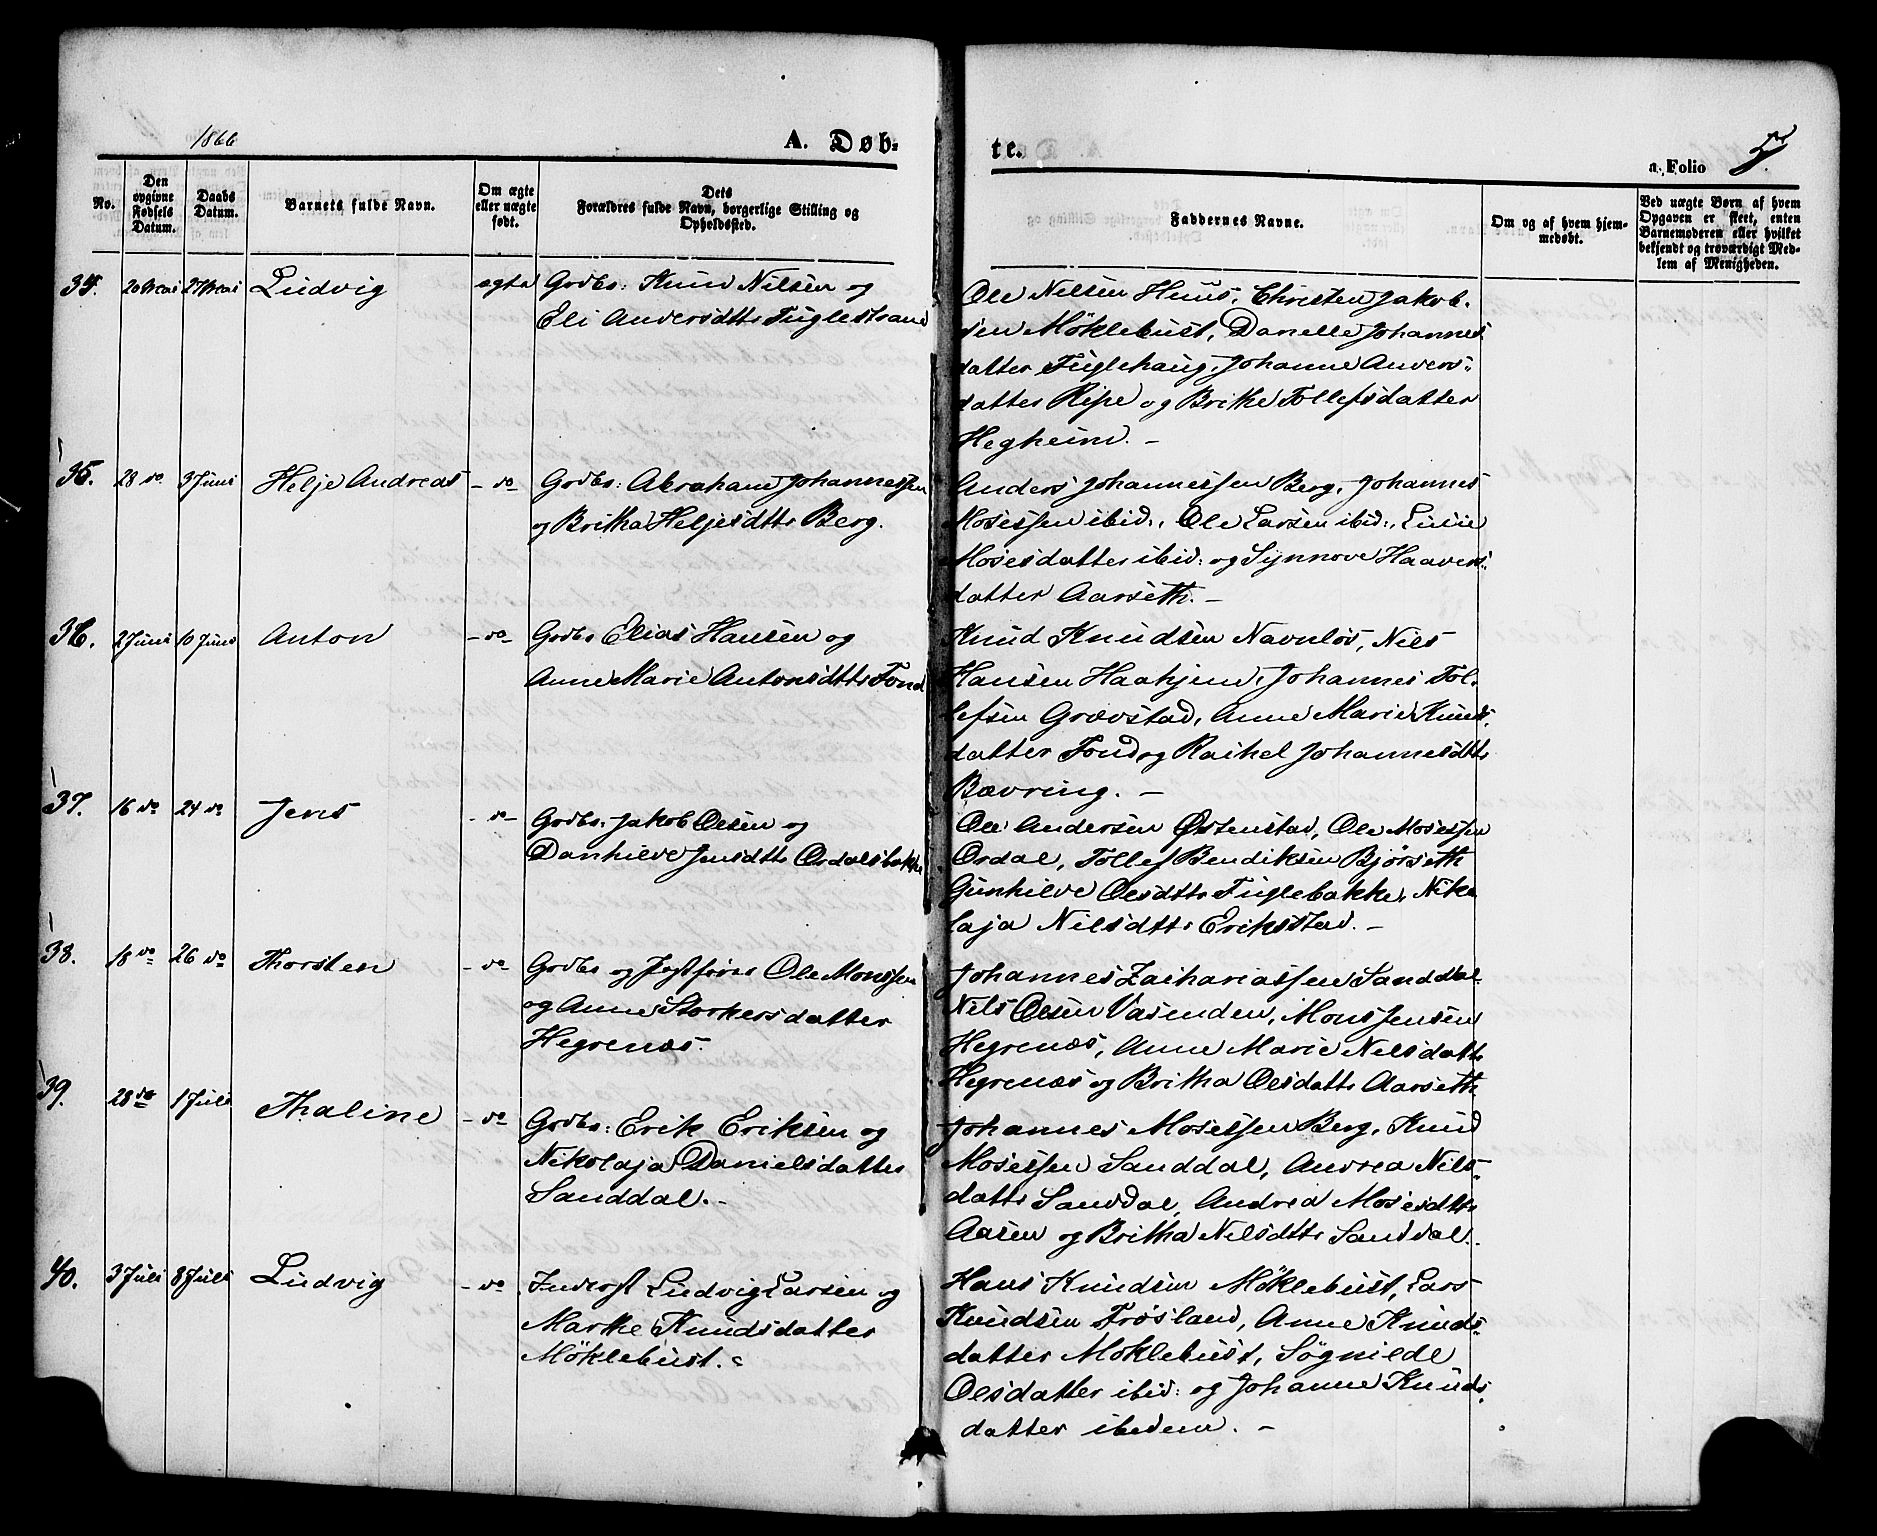 1866
A. Døb-
te.
a. Folio 5.
No.
Den opgivne Fødsels Datum.
Daabs Datum.
Barnets fulde Navn.
Om ægte eller uægte født.
Dets Forældres fulde Navn, borgerlige Stilling og Opholdssted.
Faddernes Navne.
Om og af hvem hjemmedøbt.
Ved uægte Børn af hvem Opgaven er skeet, enten Barnemoderen eller hvilket bekjendt og troværdigt Medlem af Menigheden.
34. 20 Mai 27 Mai Ludvig ægte Grdbr: Knud Nilsen og
Eli Andersdttr Fuglestrand
Ole Nilsen Huus, Christen Jakob-
sen Møklebust, Danelle Johannes
datter Fuglehaug, Johanne Anders-
datter Ripe og Brithe Tollefsdatter
Hegheim. -
35. 28 do. 3 Juni Helje Andreas - do - Grdbr: Abraham Johannessen
og Britha Heljesdttr Berg.
Anders Johannessen Berg, Johannes
Mosessen ibid:, Ole Larsen ibid:, Linie
Mosesdatter ibid: og Synnove Haavers-
datter Aarseth. -
36. 2 Juni 10 Juni Anton - do - Grdbr Elias Hansen og
Anne Marie Antonsdttr Fond
Knud Knudsen Navnløs, Nils
Hansen Haahjem, Johannes Tol-
lefsen Grovstad, Anne Marie Knuds-
datter Fond og Rachel Johannesdttr
Bævring. -
37. 16 do 24 do Jens - do - Grdbr. Jakob Olsen og
Danhilde Jensdttr Ordalsbakke
Ole Andersen Østenstad, Ole Mosessen
Ordal, Tollef Bendiksen Bjørseth
Gunhilde Olsdttr Fuglebakke, Niko
laja Nilsdttr Eriksstad. -
38. 18 do 26 do Thorsten - do - Grdbr og Jegtfører Ole Monssen
og Anne Storkersdatter
Hegrenæs.
Johannes Zachariassen Sanddal
Nils Olsen Vasenden, Mons Jensen
Hegrenæs, Anne Marie Nilsdattr
Hegrenæs og Britha Olsdattr Aarseth
39. 28 do 1 Juli Thaline - do - Grdbr: Erik Eriksen og
Nikolaja Danielsdatter
Sanddal. -
Johannes Mosessen Berg, Knud
Mosessen Sanddal, Andrea Nils-
dattr Sanddal, Andrea Mosesdttr
Aasen og Britha Nilsdttr Sanddal.
40. 3 Juli 8 Juli Ludvig - do Inderst Ludvig Larsen og
Marthe Knudsdatter
Møklebust.
Hans Knudsen Møklebust, Lars
Knudsen Frøsland, Anne Knuds-
datter Møklebust, Søgnilde
Olsdatter ibid: og Johanne Knuds-
datter ibidem. -